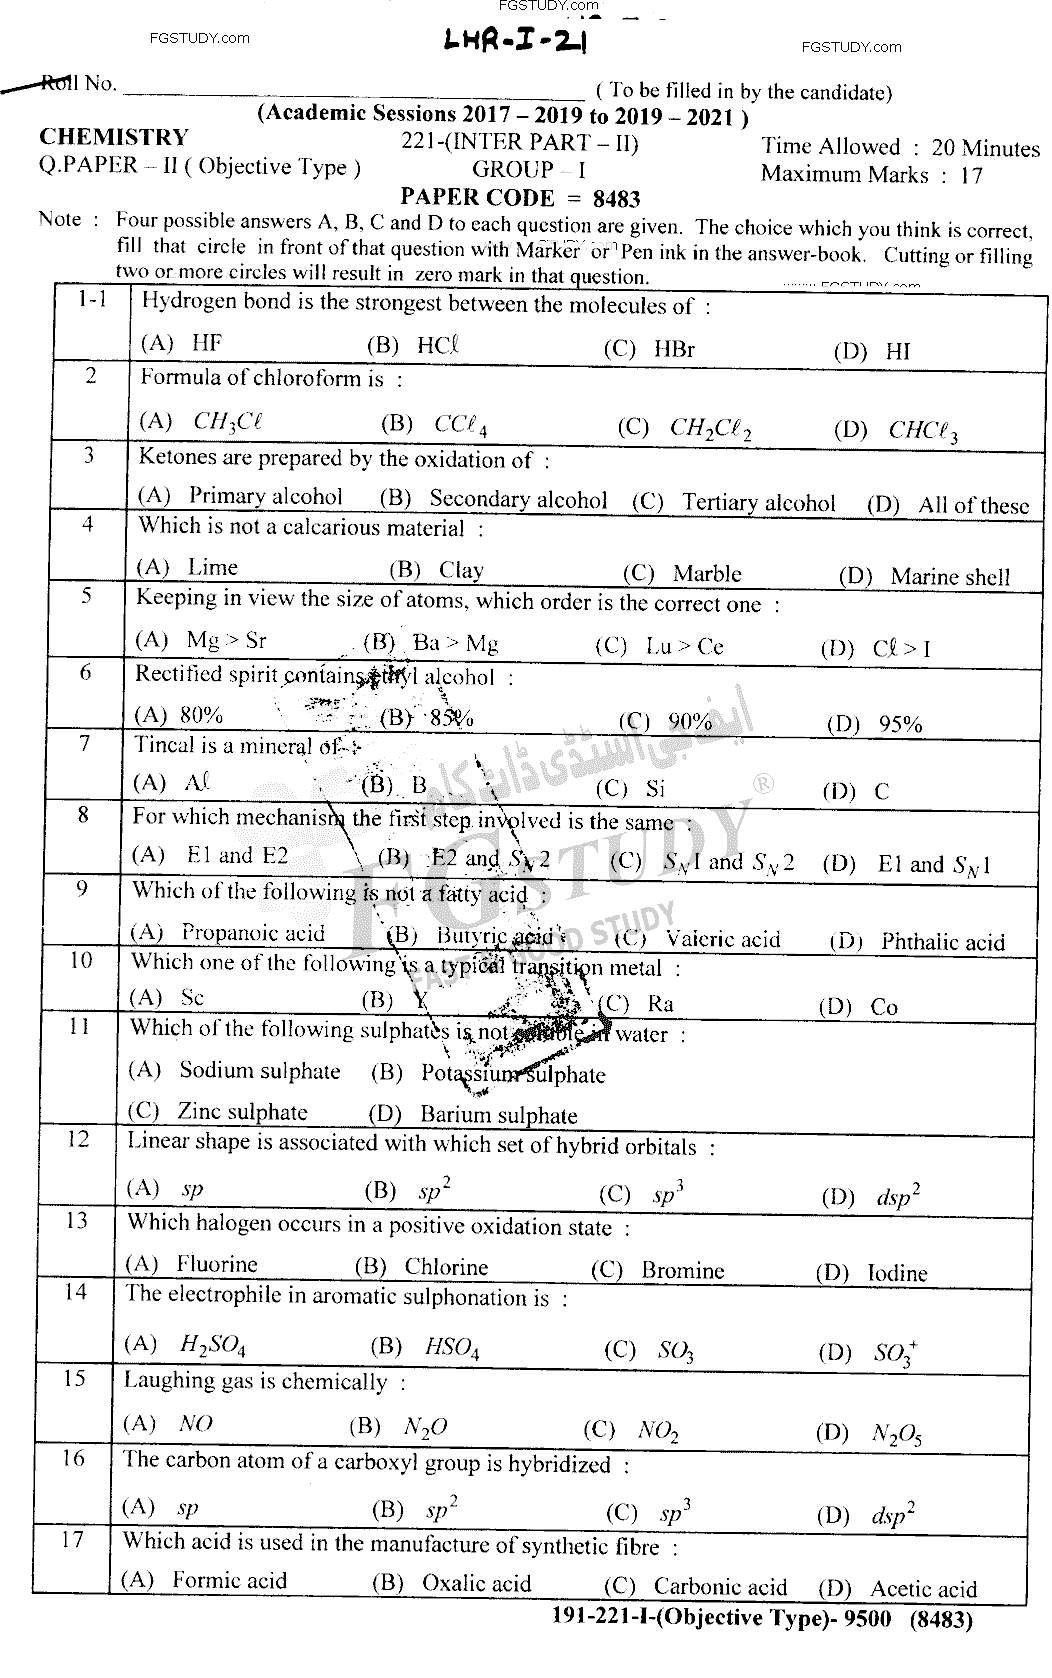 FGSTUDY.com
FGSTUDY.com
LHR-I-21
FGSTUDY.com
Roll No. ____________________ ( To be filled in by the candidate)
(Academic Sessions 2017 – 2019 to 2019 – 2021 )
CHEMISTRY 221-(INTER PART – II) Time Allowed : 20 Minutes
Q.PAPER – II ( Objective Type ) GROUP – I Maximum Marks : 17
PAPER CODE = 8483
Note : Four possible answers A, B, C and D to each question are given. The choice which you think is correct,
fill that circle in front of that question with Marker or Pen ink in the answer-book. Cutting or filling
two or more circles will result in zero mark in that question.
FGSTUDY.com
1-1 Hydrogen bond is the strongest between the molecules of :
(A) HF (B) HCℓ (C) HBr (D) HI
2 Formula of chloroform is :
(A) CH₃Cℓ (B) CCℓ₄ (C) CH₂Cℓ₂ (D) CHCℓ₃
3 Ketones are prepared by the oxidation of :
(A) Primary alcohol (B) Secondary alcohol (C) Tertiary alcohol (D) All of these
4 Which is not a calcarious material :
(A) Lime (B) Clay (C) Marble (D) Marine shell
5 Keeping in view the size of atoms, which order is the correct one :
(A) Mg > Sr (B) Ba > Mg (C) Lu > Ce (D) Cℓ > I
6 Rectified spirit contains ethyl alcohol :
(A) 80% (B) 85% (C) 90% (D) 95%
7 Tincal is a mineral of :
(A) Aℓ (B) B (C) Si (D) C
8 For which mechanism the first step involved is the same :
(A) E1 and E2 (B) E2 and Sₙ2 (C) Sₙ1 and Sₙ2 (D) E1 and Sₙ1
9 Which of the following is not a fatty acid :
(A) Propanoic acid (B) Butyric acid (C) Valeric acid (D) Phthalic acid
10 Which one of the following is a typical transition metal :
(A) Sc (B) Y (C) Ra (D) Co
11 Which of the following sulphates is not soluble in water :
(A) Sodium sulphate (B) Potassium sulphate
(C) Zinc sulphate (D) Barium sulphate
12 Linear shape is associated with which set of hybrid orbitals :
(A) sp (B) sp² (C) sp³ (D) dsp²
13 Which halogen occurs in a positive oxidation state :
(A) Fluorine (B) Chlorine (C) Bromine (D) Iodine
14 The electrophile in aromatic sulphonation is :
(A) H₂SO₄ (B) HSO₄ (C) SO₃ (D) SO₃⁺
15 Laughing gas is chemically :
(A) NO (B) N₂O (C) NO₂ (D) N₂O₅
16 The carbon atom of a carboxyl group is hybridized :
(A) sp (B) sp² (C) sp³ (D) dsp²
17 Which acid is used in the manufacture of synthetic fibre :
(A) Formic acid (B) Oxalic acid (C) Carbonic acid (D) Acetic acid
191-221-I-(Objective Type)- 9500 (8483)
ایف جی اسٹڈی ڈاٹ کام
FGSTUDY ®
FAST & GOOD STUDY